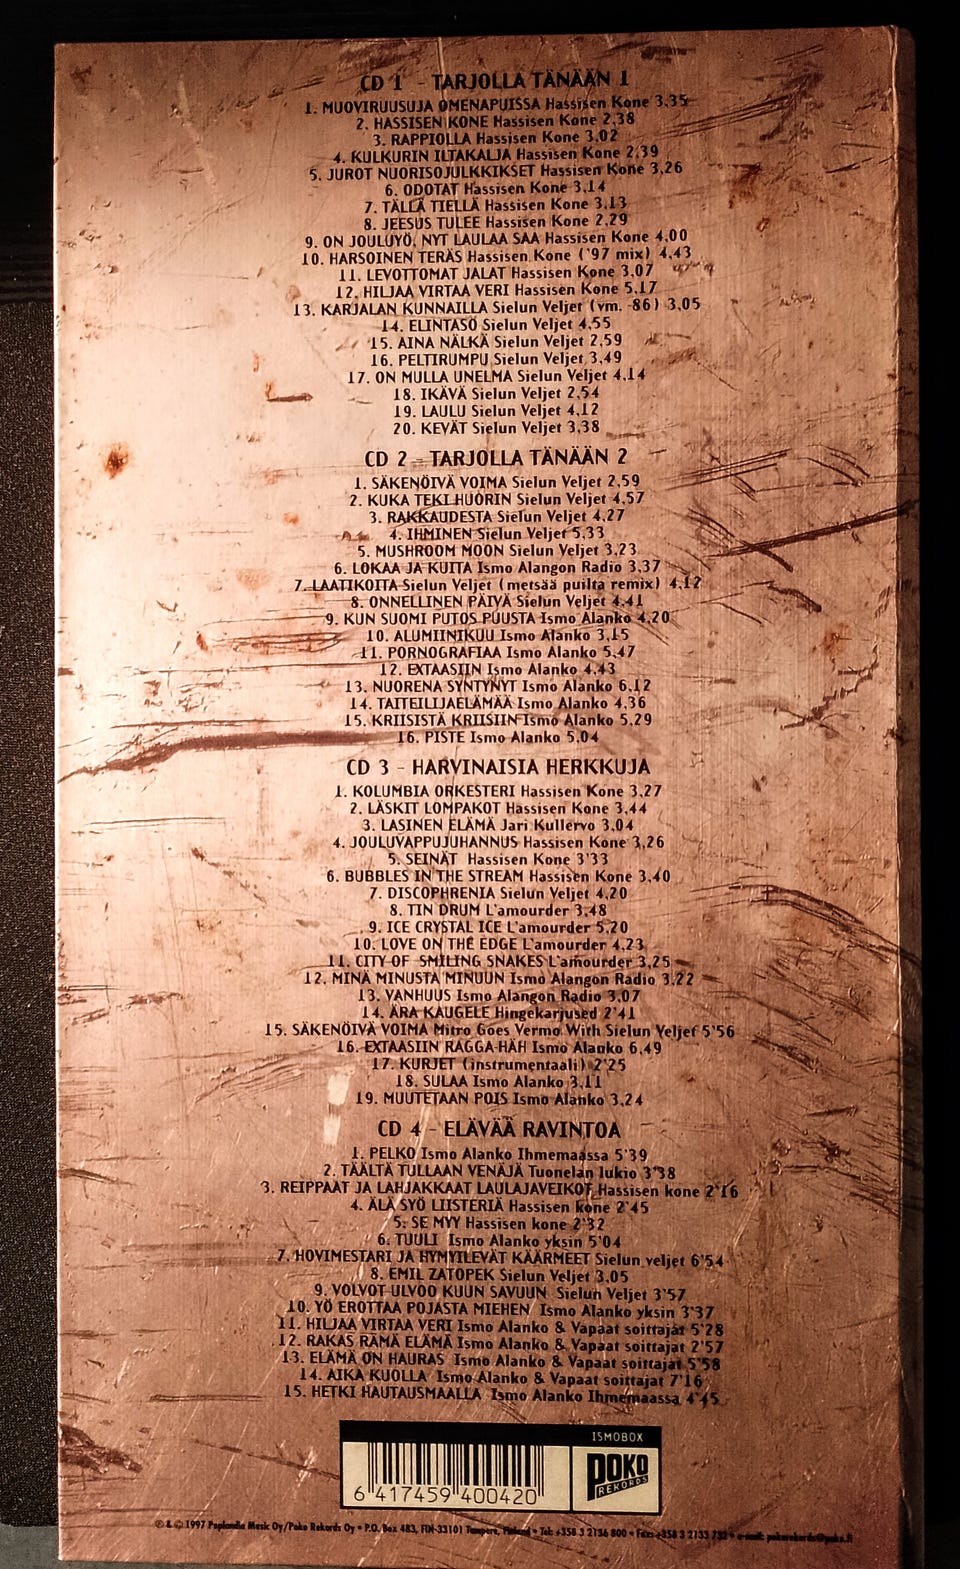 CD 1 - TARJOLLA TÄNÄÄN 1
1. MUOVIRUUSUJA OMENAPUISSA Hassisen Kone 3.35
2. HASSISEN KONE Hassisen Kone 2.38
3. RAPPIOLLA Hassisen Kone 3.02
4. KULKURIN ILTAKALJA Hassisen Kone 2.39
5. JUROT NUORISOJULKKIKSET Hassisen Kone 3.26
6. ODOTAT Hassisen Kone 3.14
7. TÄLLÄ TIELLÄ Hassisen Kone 3.13
8. JEESUS TULEE Hassisen Kone 2.29
9. ON JOULUYÖ, NYT LAULAA SAA Hassisen Kone 4.00
10. HARSOINEN TERÄS Hassisen Kone ('97 mix) 4.43
11. LEVOTTOMAT JALAT Hassisen Kone 3.07
12. HILJAA VIRTAA VERI Hassisen Kone 5.17
13. KARJALAN KUNNAILLA Sielun Veljet (vm. -86) 3.05
14. ELINTASO Sielun Veljet 4.55
15. AINA NÄLKÄ Sielun Veljet 2.59
16. PELTIRUMPU Sielun Veljet 3.49
17. ON MULLA UNELMA Sielun Veljet 4.14
18. IKÄVÄ Sielun Veljet 2.54
19. LAULU Sielun Veljet 4.12
20. KEVÄT Sielun Veljet 3.38
CD 2 - TARJOLLA TÄNÄÄN 2
1. SÄKENÖIVÄ VOIMA Sielun Veljet 2.59
2. KUKA TEKI HUORIN Sielun Veljet 4.57
3. RAKKAUDESTA Sielun Veljet 4.27
4. IHMINEN Sielun Veljet 5.33
5. MUSHROOM MOON Sielun Veljet 3.23
6. LOKAA JA KULTAA Ismo Alangon Radio 3.37
7. LAATIKOITA Sielun Veljet (metsää puilta remix) 4.12
8. ONNELLINEN PÄIVÄ Sielun Veljet 4.41
9. KUN SUOMI PUTOS PUUSTA Ismo Alanko 4.20
10. ALUMIINIKUU Ismo Alanko 3.15
11. PORNOGRAFIAA Ismo Alanko 5.47
12. EXTAASIIN Ismo Alanko 4.43
13. NUORENA SYNTYNYT Ismo Alanko 6.12
14. TAITEILIJAELÄMÄÄ Ismo Alanko 4.36
15. KRIISISTÄ KRIISIIN Ismo Alanko 5.29
16. PISTE Ismo Alanko 5.04
CD 3 - HARVINAISIA HERKKUJA
1. KOLUMBIA ORKESTERI Hassisen Kone 3.27
2. LÄSKIT LOMPAKOT Hassisen Kone 3.44
3. LASINEN ELÄMÄ Jari Kullervo 3.04
4. JOULUVAPPUJUHANNUS Hassisen Kone 3.26
5. SEINÄT Hassisen Kone 3'33
6. BUBBLES IN THE STREAM Hassisen Kone 3.40
7. DISCOPHRENIA Sielun Veljet 4.20
8. TIN DRUM L'amourder 3.48
9. ICE CRYSTAL ICE L'amourder 5.20
10. LOVE ON THE EDGE L'amourder 4.23
11. CITY OF SMILING SNAKES L'amourder 3.25
12. MINÄ MINUSTA MINUUN Ismo Alangon Radio 3.22
13. VANHUUS Ismo Alangon Radio 3.07
14. ÄRA KAUGELE Hingekarjused 2'41
15. SÄKENÖIVÄ VOIMA Mitro Goes Vermo With Sielun Veljet 5'56
16. EXTAASIIN RAGGA-HÄH Ismo Alanko 6.49
17. KURJET (instrumentaali) 2'25
18. SULAA Ismo Alanko 3.11
19. MUUTETAAN POIS Ismo Alanko 3.24
CD 4 - ELÄVÄÄ RAVINTOA
1. PELKO Ismo Alanko Ihmemaassa 5'39
2. TÄÄLTÄ TULLAAN VENÄJÄ Tuonelan lukio 3'38
3. REIPPAAT JA LAHJAKKAAT LAULAJAVEIKOT Hassisen kone 2'16
4. ÄLÄ SYÖ LIISTERIÄ Hassisen kone 2'45
5. SE MYY Hassisen kone 2'32
6. TUULI Ismo Alanko yksin 5'04
7. HOVIMESTARI JA HYMYILEVÄT KÄÄRMEET Sielun veljet 6'54
8. EMIL ZATOPEK Sielun Veljet 3.05
9. VOLVOT ULVOO KUUN SAVUUN Sielun Veljet 3'57
10. YÖ EROTTAA POJASTA MIEHEN Ismo Alanko yksin 3'37
11. HILJAA VIRTAA VERI Ismo Alanko & Vapaat soittajat 5'28
12. RAKAS RÄMÄ ELÄMÄ Ismo Alanko & Vapaat soittajat 2'57
13. ELÄMÄ ON HAURAS Ismo Alanko & Vapaat soittajat 5'58
14. AIKA KUOLLA Ismo Alanko & Vapaat soittajat 7'16
15. HETKI HAUTAUSMAALLA Ismo Alanko Ihmemaassa 4'45
ISMOBOX
POKO
RECORDS
6 417459 400420
℗ & © 1997 Poplandia Music Oy/Poko Rekords Oy • P.O. Box 483, FIN-33101 Tampere, Finland • Tel: +358 3 2136 800 • Fax: +358 3 2133 732 • e-mail: pokorekords@poko.fi